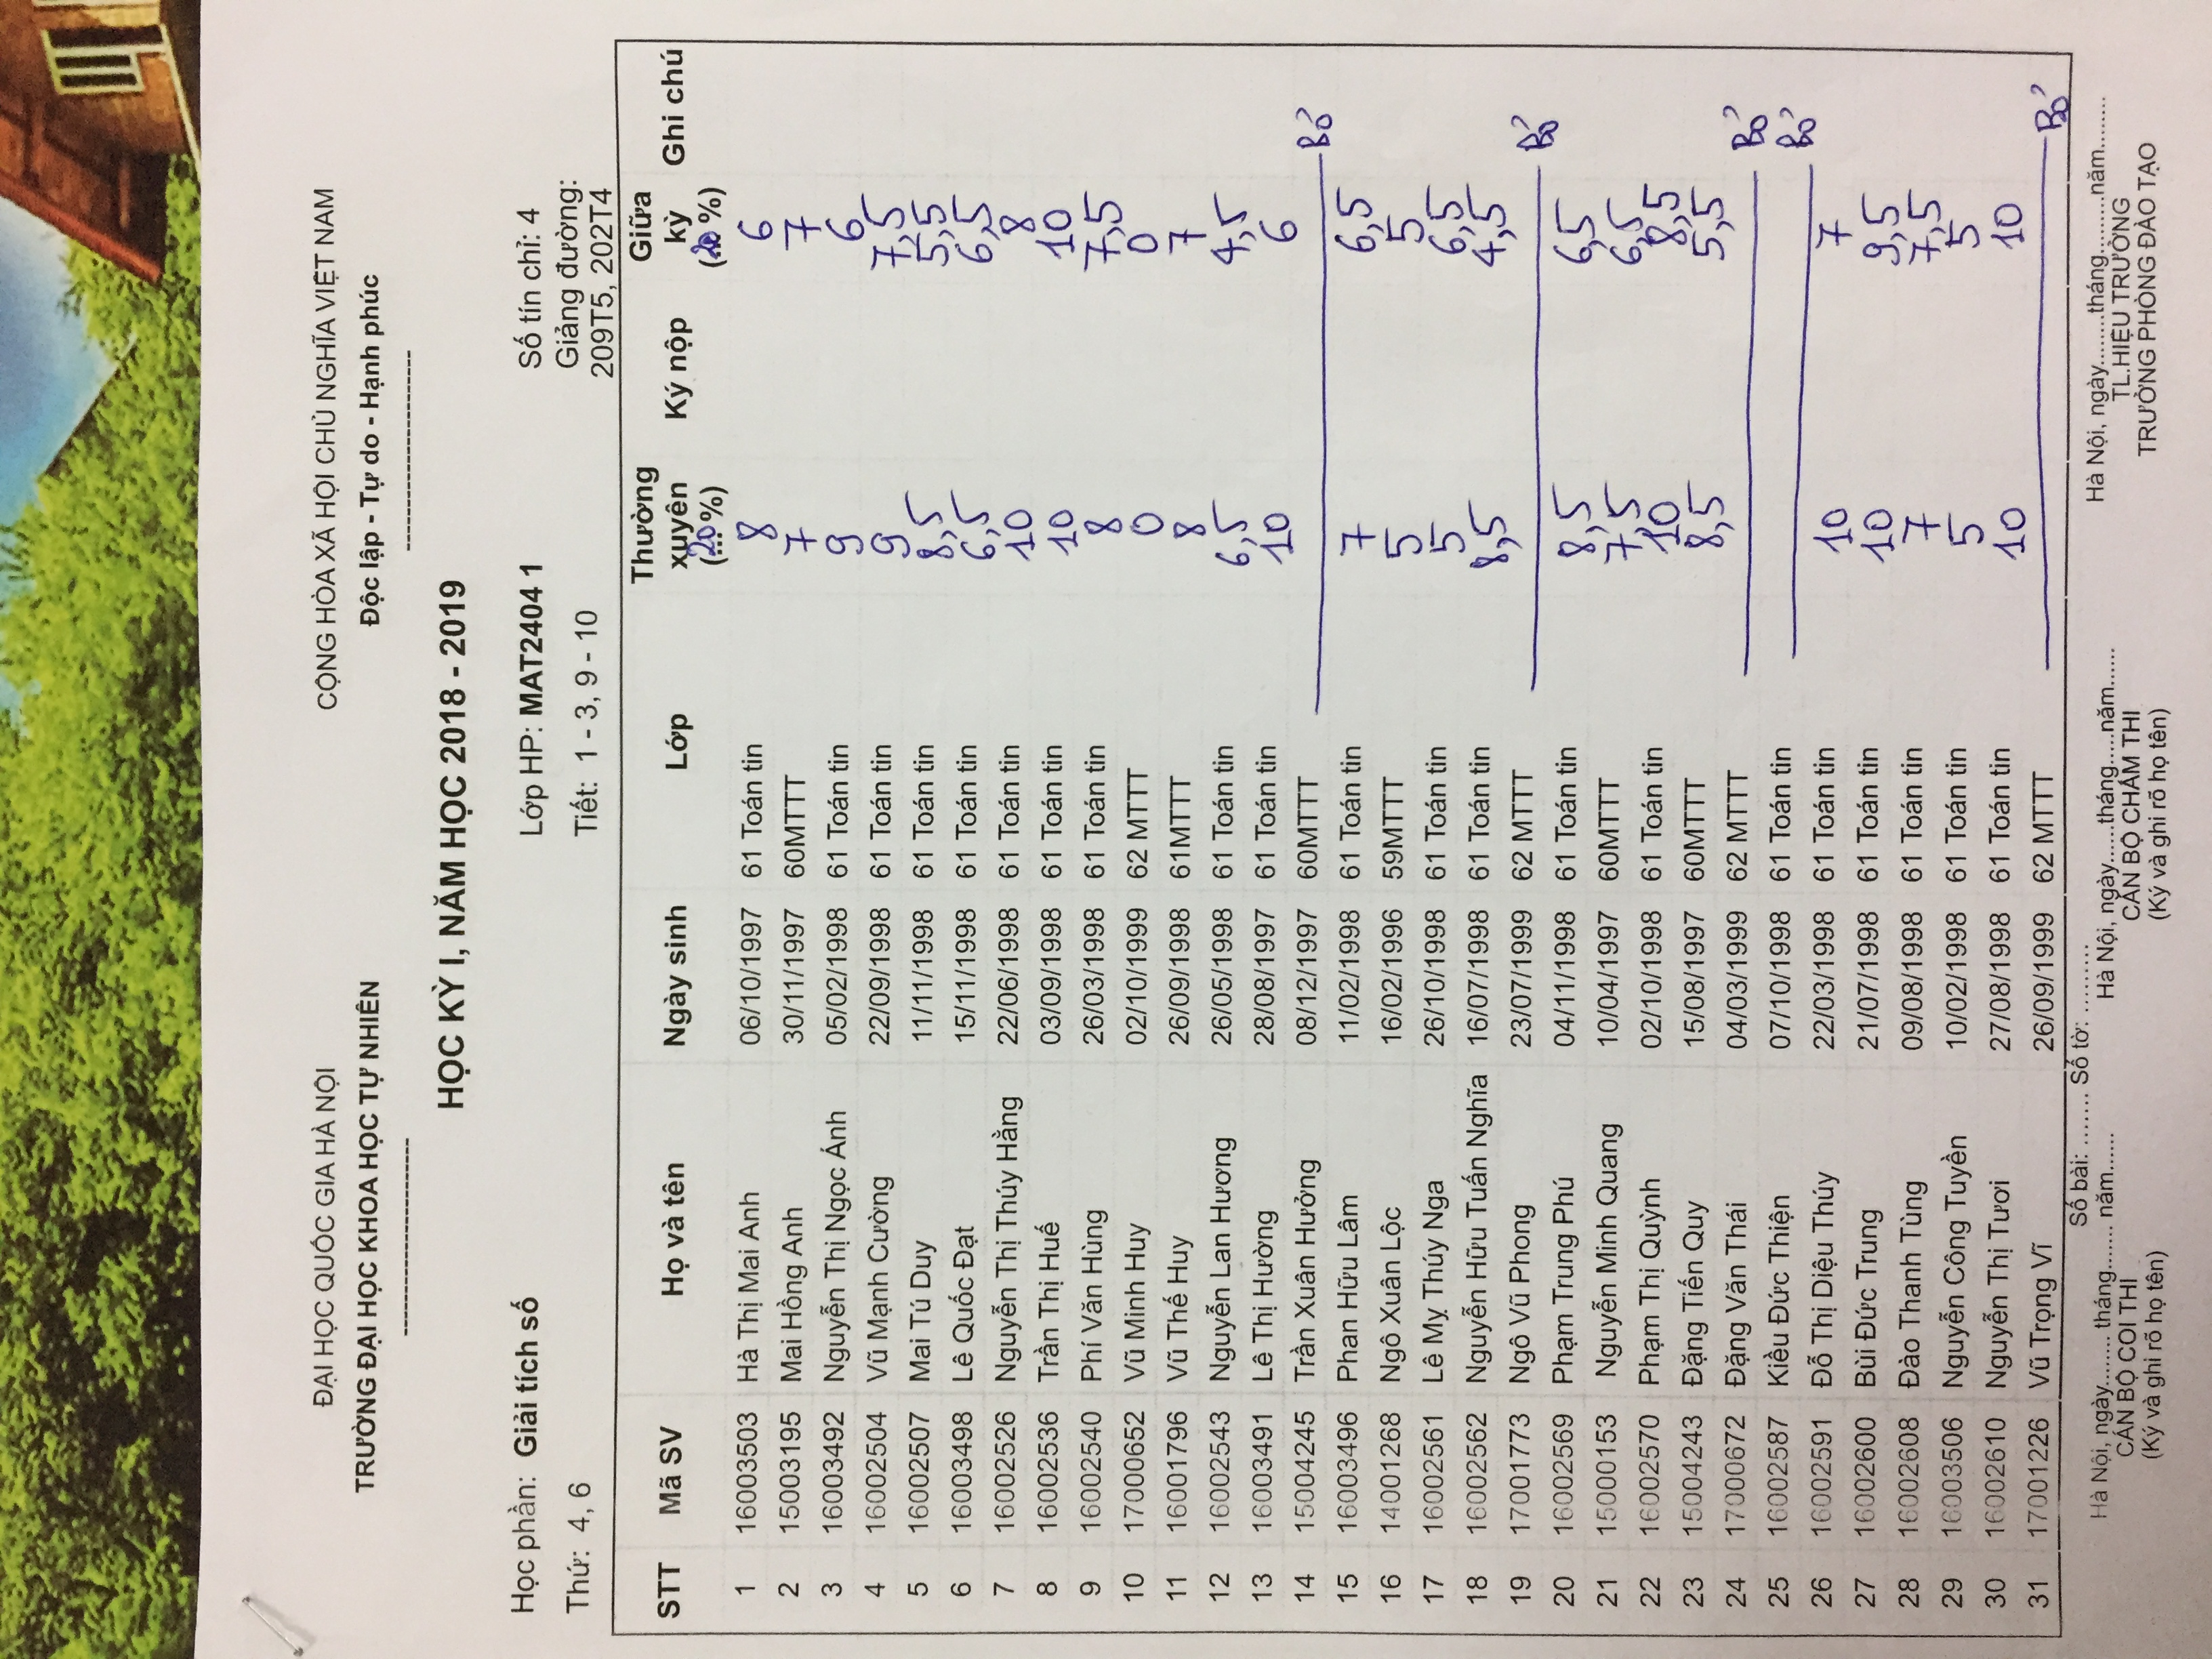 ĐẠI HỌC QUỐC GIA HÀ NỘI CỘNG HÒA XÃ HỘI CHỦ NGHĨA VIỆT NAM
TRƯỜNG ĐẠI HỌC KHOA HỌC TỰ NHIÊN Độc lập - Tự do - Hạnh phúc
HỌC KỲ I, NĂM HỌC 2018 - 2019
Học phần: Giải tích số Lớp HP: MAT2404 1 Số tín chỉ: 4
Thứ: 4, 6 Tiết: 1 - 3, 9 - 10 Giảng đường:
209T5, 202T4
STT Mã SV Họ và tên Ngày sinh Lớp Thường xuyên (20 %) Ký nộp Giữa kỳ (20 %) Ghi chú
1 16003503 Hà Thị Mai Anh 06/10/1997 61 Toán tin 8 6
2 15003195 Mai Hồng Anh 30/11/1997 60MTTT 7 7
3 16003492 Nguyễn Thị Ngọc Ánh 05/02/1998 61 Toán tin 9 6
4 16002504 Vũ Mạnh Cường 22/09/1998 61 Toán tin 9 7,5
5 16002507 Mai Tú Duy 11/11/1998 61 Toán tin 8,5 5,5
6 16003498 Lê Quốc Đạt 15/11/1998 61 Toán tin 6,5 6,5
7 16002526 Nguyễn Thị Thúy Hằng 22/06/1998 61 Toán tin 10 8
8 16002536 Trần Thị Huế 03/09/1998 61 Toán tin 10 10
9 16002540 Phí Văn Hùng 26/03/1998 61 Toán tin 8 7,5
10 17000652 Vũ Minh Huy 02/10/1999 62 MTTT 0 0
11 16001796 Vũ Thế Huy 26/09/1998 61MTTT 8 7
12 16002543 Nguyễn Lan Hương 26/05/1998 61 Toán tin 6,5 4,5
13 16003491 Lê Thị Hường 28/08/1997 61 Toán tin 10 6
14 15004245 Trần Xuân Hưởng 08/12/1997 60MTTT Bỏ
15 16003496 Phan Hữu Lâm 11/02/1998 61 Toán tin 7 6,5
16 14001268 Ngô Xuân Lộc 16/02/1996 59MTTT 5 5
17 16002561 Lê Mỵ Thúy Nga 26/10/1998 61 Toán tin 5 6,5
18 16002562 Nguyễn Hữu Tuấn Nghĩa 16/07/1998 61 Toán tin 8,5 4,5
19 17001773 Ngô Vũ Phong 23/07/1999 62 MTTT Bỏ
20 16002569 Phạm Trung Phú 04/11/1998 61 Toán tin 8,5 6,5
21 15000153 Nguyễn Minh Quang 10/04/1997 60MTTT 7,5 6,5
22 16002570 Phạm Thị Quỳnh 02/10/1998 61 Toán tin 10 8,5
23 15004243 Đặng Tiến Quy 15/08/1997 60MTTT 8,5 5,5
24 17000672 Đặng Văn Thái 04/03/1999 62 MTTT Bỏ
25 16002587 Kiều Đức Thiện 07/10/1998 61 Toán tin Bỏ
26 16002591 Đỗ Thị Diệu Thúy 22/03/1998 61 Toán tin 10 7
27 16002600 Bùi Đức Trung 21/07/1998 61 Toán tin 10 9,5
28 16002608 Đào Thanh Tùng 09/08/1998 61 Toán tin 7 7,5
29 16003506 Nguyễn Công Tuyền 10/02/1998 61 Toán tin 5 5
30 16002610 Nguyễn Thị Tươi 27/08/1998 61 Toán tin 10 10
31 17001226 Vũ Trọng Vĩ 26/09/1999 62 MTTT Bỏ
Số bài: ....... Số tờ: .........
Hà Nội, ngày........ tháng....... năm...... Hà Nội, ngày......tháng.....năm...... Hà Nội, ngày........tháng.........năm........
CÁN BỘ COI THI CÁN BỘ CHẤM THI TL.HIỆU TRƯỞNG
(Ký và ghi rõ họ tên) (Ký và ghi rõ họ tên) TRƯỞNG PHÒNG ĐÀO TẠO